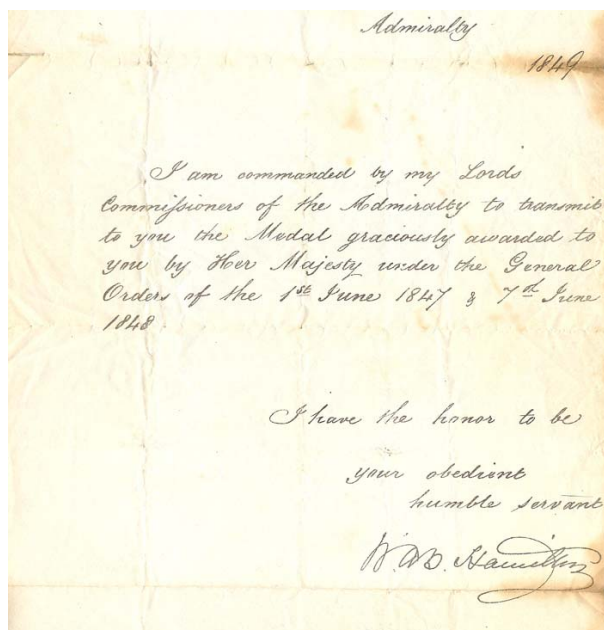 Admiralty
1849
I am commanded by my Lords
Commiſsioners of the Admiralty to transmit
to you the Medal graciously awarded to
you by Her Majesty under the General
Orders of the 1st June 1847 & 7th June
1848
I have the honor to be
your obedient
humble servant
W.A.B. Hamilton